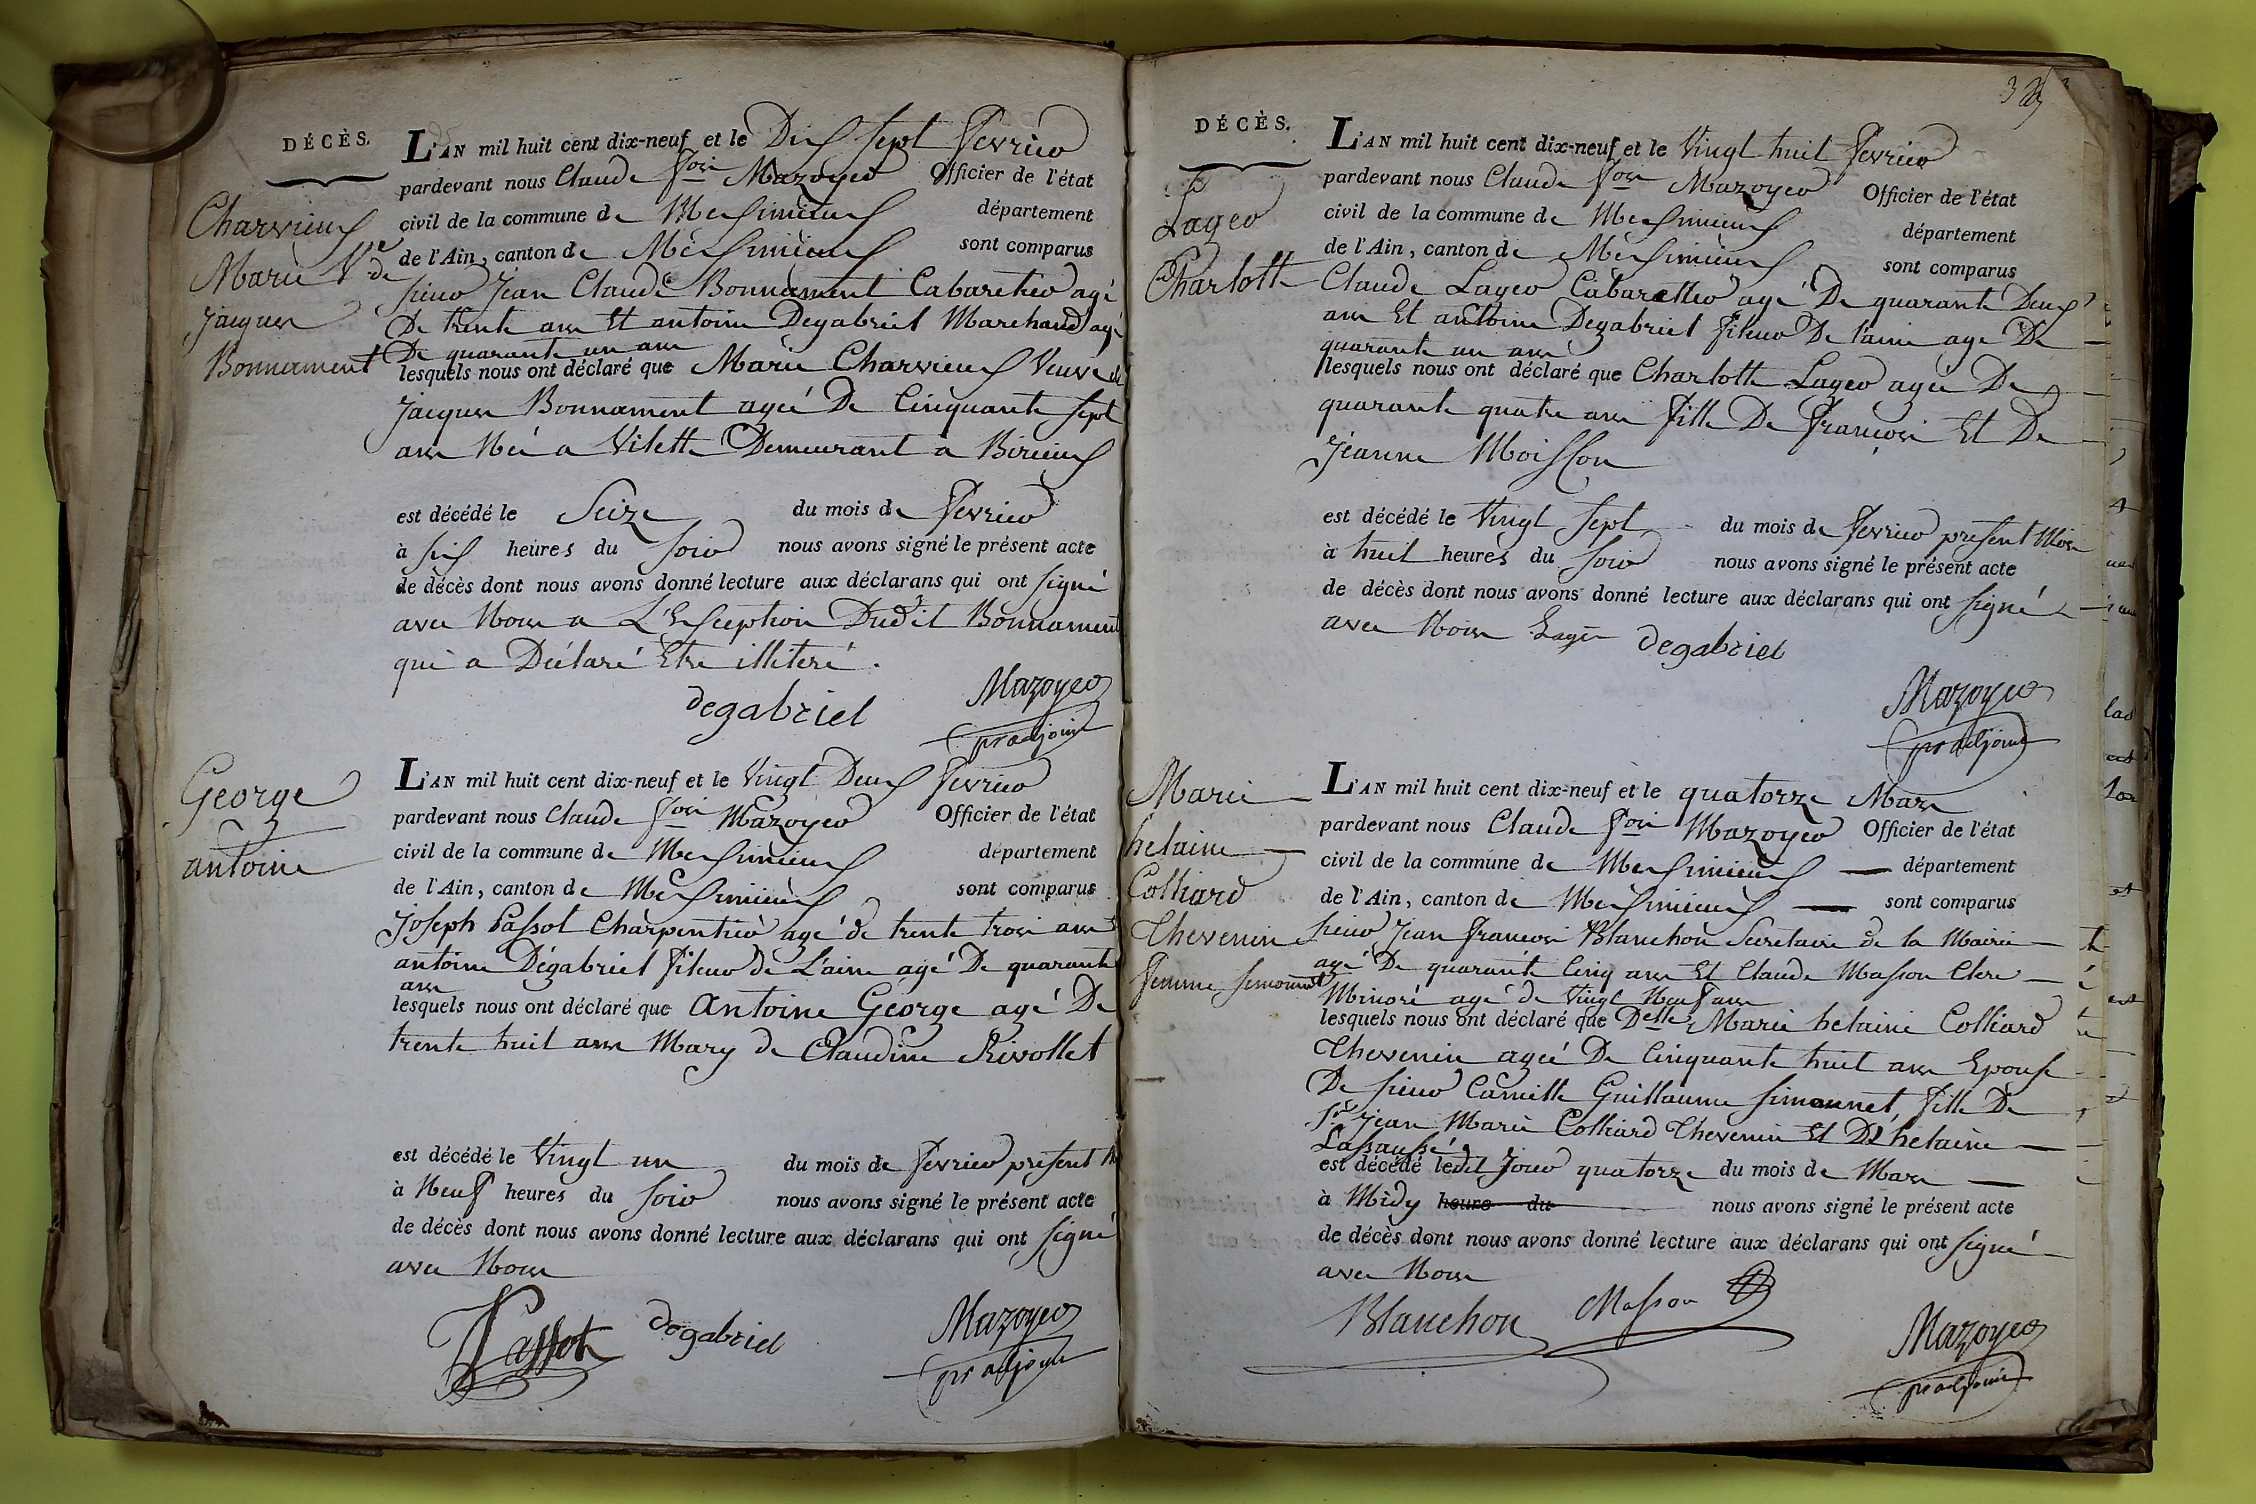 DÉCÈS.
Charvieux
Marie Vve de
Jacques
Bonnament
L'AN mil huit cent dix-neuf et le Dix sept fevrier
pardevant nous Claude fois Mazoyer Officier de l'état
civil de la commune de Meximieux département
de l'Ain, canton de Méximieux sont comparus
sieur Jean Claude Bonnament Cabaretier agé
De trente ans Et antoine Degabriel Marchand agé
De quarante un ans
lesquels nous ont déclaré que Marie Charvieux Veuve de
Jacques Bonnament ageé De Cinquante sept
ans Neé a Vilette Demeurant a Birieux
est décédé le Seize du mois de fevrier
à six heures du soir nous avons signé le présent acte
de décès dont nous avons donné lecture aux déclarans qui ont signé
avec Nous a L'Exception Dudit Bonnament
qui a Déclaré Etre illiteré.
degabriel Mazoyer
pr adjoint
George
antoine
L'AN mil huit cent dix-neuf et le Vingt Deux fevrier
pardevant nous Claude fois Mazoyer Officier de l'état
civil de la commune de Meximieux département
de l'Ain, canton de Meximieux sont comparus
Joseph Passot Charpentier agé de trente trois ans
antoine Dégabriel fileur de Laine agé De quarante
ans
lesquels nous ont déclaré que Antoine George agé De
trente huit ans Mary de Claudine Rivollet
est décédé le Vingt un du mois de fevrier present
à Neuf heures du soir nous avons signé le présent acte
de décès dont nous avons donné lecture aux déclarans qui ont signé
avec Nous
Passot degabriel Mazoyer
pr adjoint
DÉCÈS.
Lager
Charlotte
L'AN mil huit cent dix-neuf et le Vingt huit fevrier
pardevant nous Claude fois Mazoyer Officier de l'état
civil de la commune de Meximieux département
de l'Ain, canton de Méximieux sont comparus
Claude Lager Cabarettier agé De quarante Deux
ans Et antoine Degabriel fileur De laine agé De
quarante un ans
lesquels nous ont déclaré que Charlotte Lager ageé De
quarante quatre ans fille De francois Et De
Jeanne Moisson
est décédé le Vingt sept du mois de fevrier present Mois
à huit heures du soir nous avons signé le présent acte
de décès dont nous avons donné lecture aux déclarans qui ont signé
avec Nous Lager degabriel
Mazoyer
pr adjoint
Marie
helaine
Colliard
Thevenin
femme simonnet
L'AN mil huit cent dix-neuf et le quatorze Mars
pardevant nous Claude fois Mazoyer Officier de l'état
civil de la commune de Meximieux département
de l'Ain, canton de Meximieux sont comparus
sieur Jean francois Blanchon Secretaire de la Mairie
agé De quarante Cinq ans Et Claude Masson Clerc
Minoré agé de Vingt Neuf ans
lesquels nous ont déclaré que Delle Marie helaine Colliard
Thevenin ageé De Cinquante huit ans Epouse
De sieur Camille Guillaume simonnet, fille De
sr Jean Marie Colliard Thevenin Et De helaine
Lassaussé
est décédé ledit Jour quatorze du mois de Mars
à Midy heure du nous avons signé le présent acte
de décès dont nous avons donné lecture aux déclarans qui ont signé
avec Nous
Blanchon Masson
Mazoyer
pr adjoint